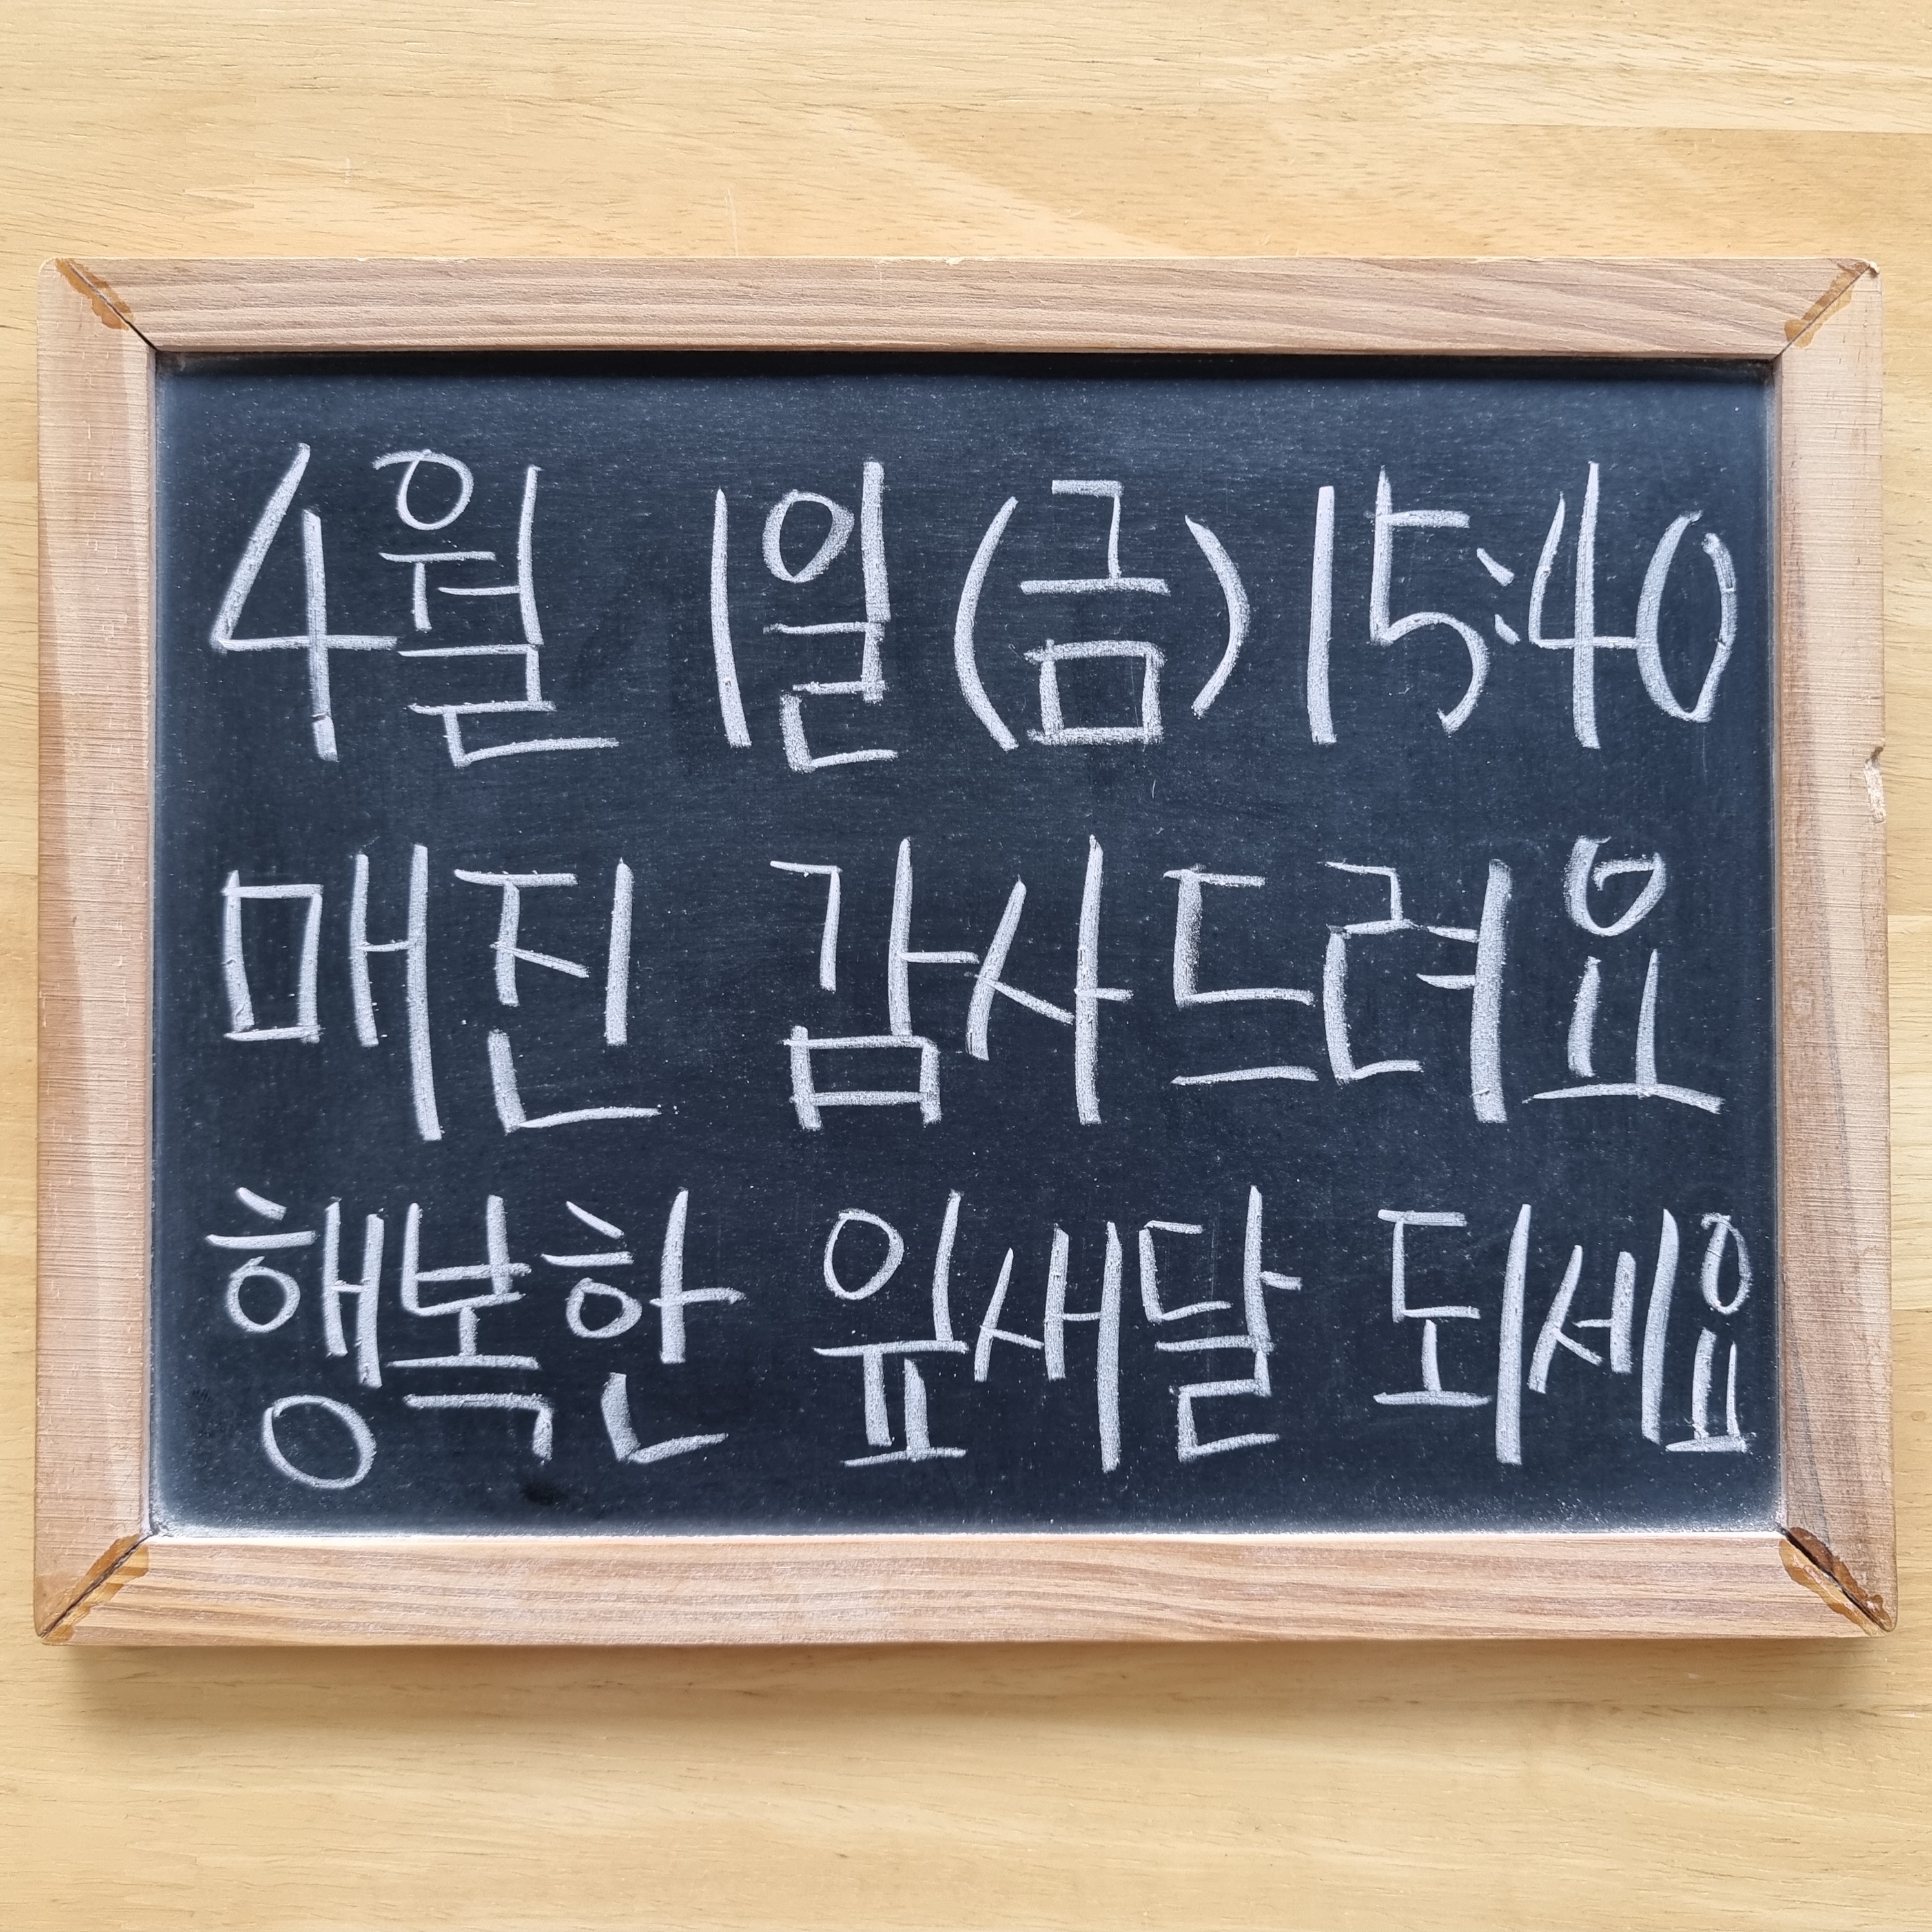 4월 1일(금) 15:40
매진 감사드려요
행복한 잎새달 되세요